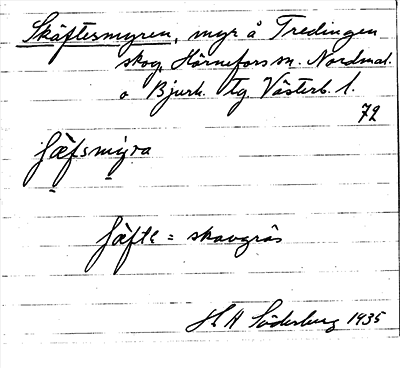 Skäftesmyren, myr å Tredingen
skog, Hörnefors sn. Nordmal.
o Bjurh. tg. Västerb. l.
72
ʃæfsmyra
ʃæfte = skavgräs
H A Söderberg 1935